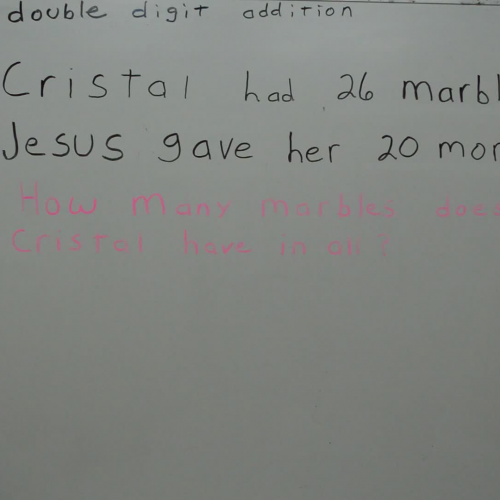 double digit addition
Cristal had 26 marbl
Jesus gave her 20 mor
How many marbles does
Cristal have in all?